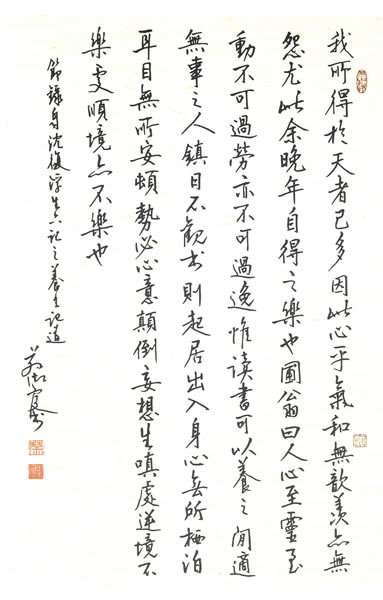 我所得於天者已多因此心平氣和無歆羨亦無
怨尤此余晚年自得之樂也圃翁曰人心至靈至
動不可過勞亦不可過逸惟读書可以養之閒適
無事之人鎮日不觀书則起居出入身心無所栖泊
耳目無所安頓勢必心意顛倒妄想生嗔處逆境不
樂處順境亦不樂也
節錄自沈復浮生六記之養生記道